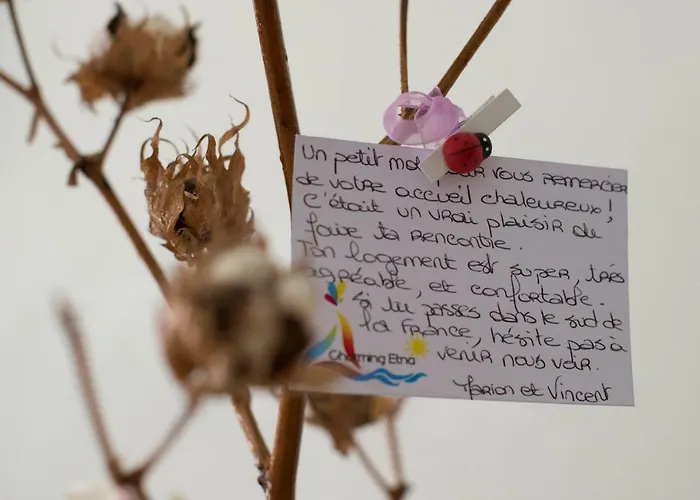 Un petit mot pour vous remercier
de votre accueil chaleureux !
C'était un vrai plaisir de
faire ta rencontre.
Ton logement est super, très
agréable, et confortable.
Si tu passes dans le sud de
la France, hésite pas à
venir nous voir.
Marion et Vincent
Charming Etna